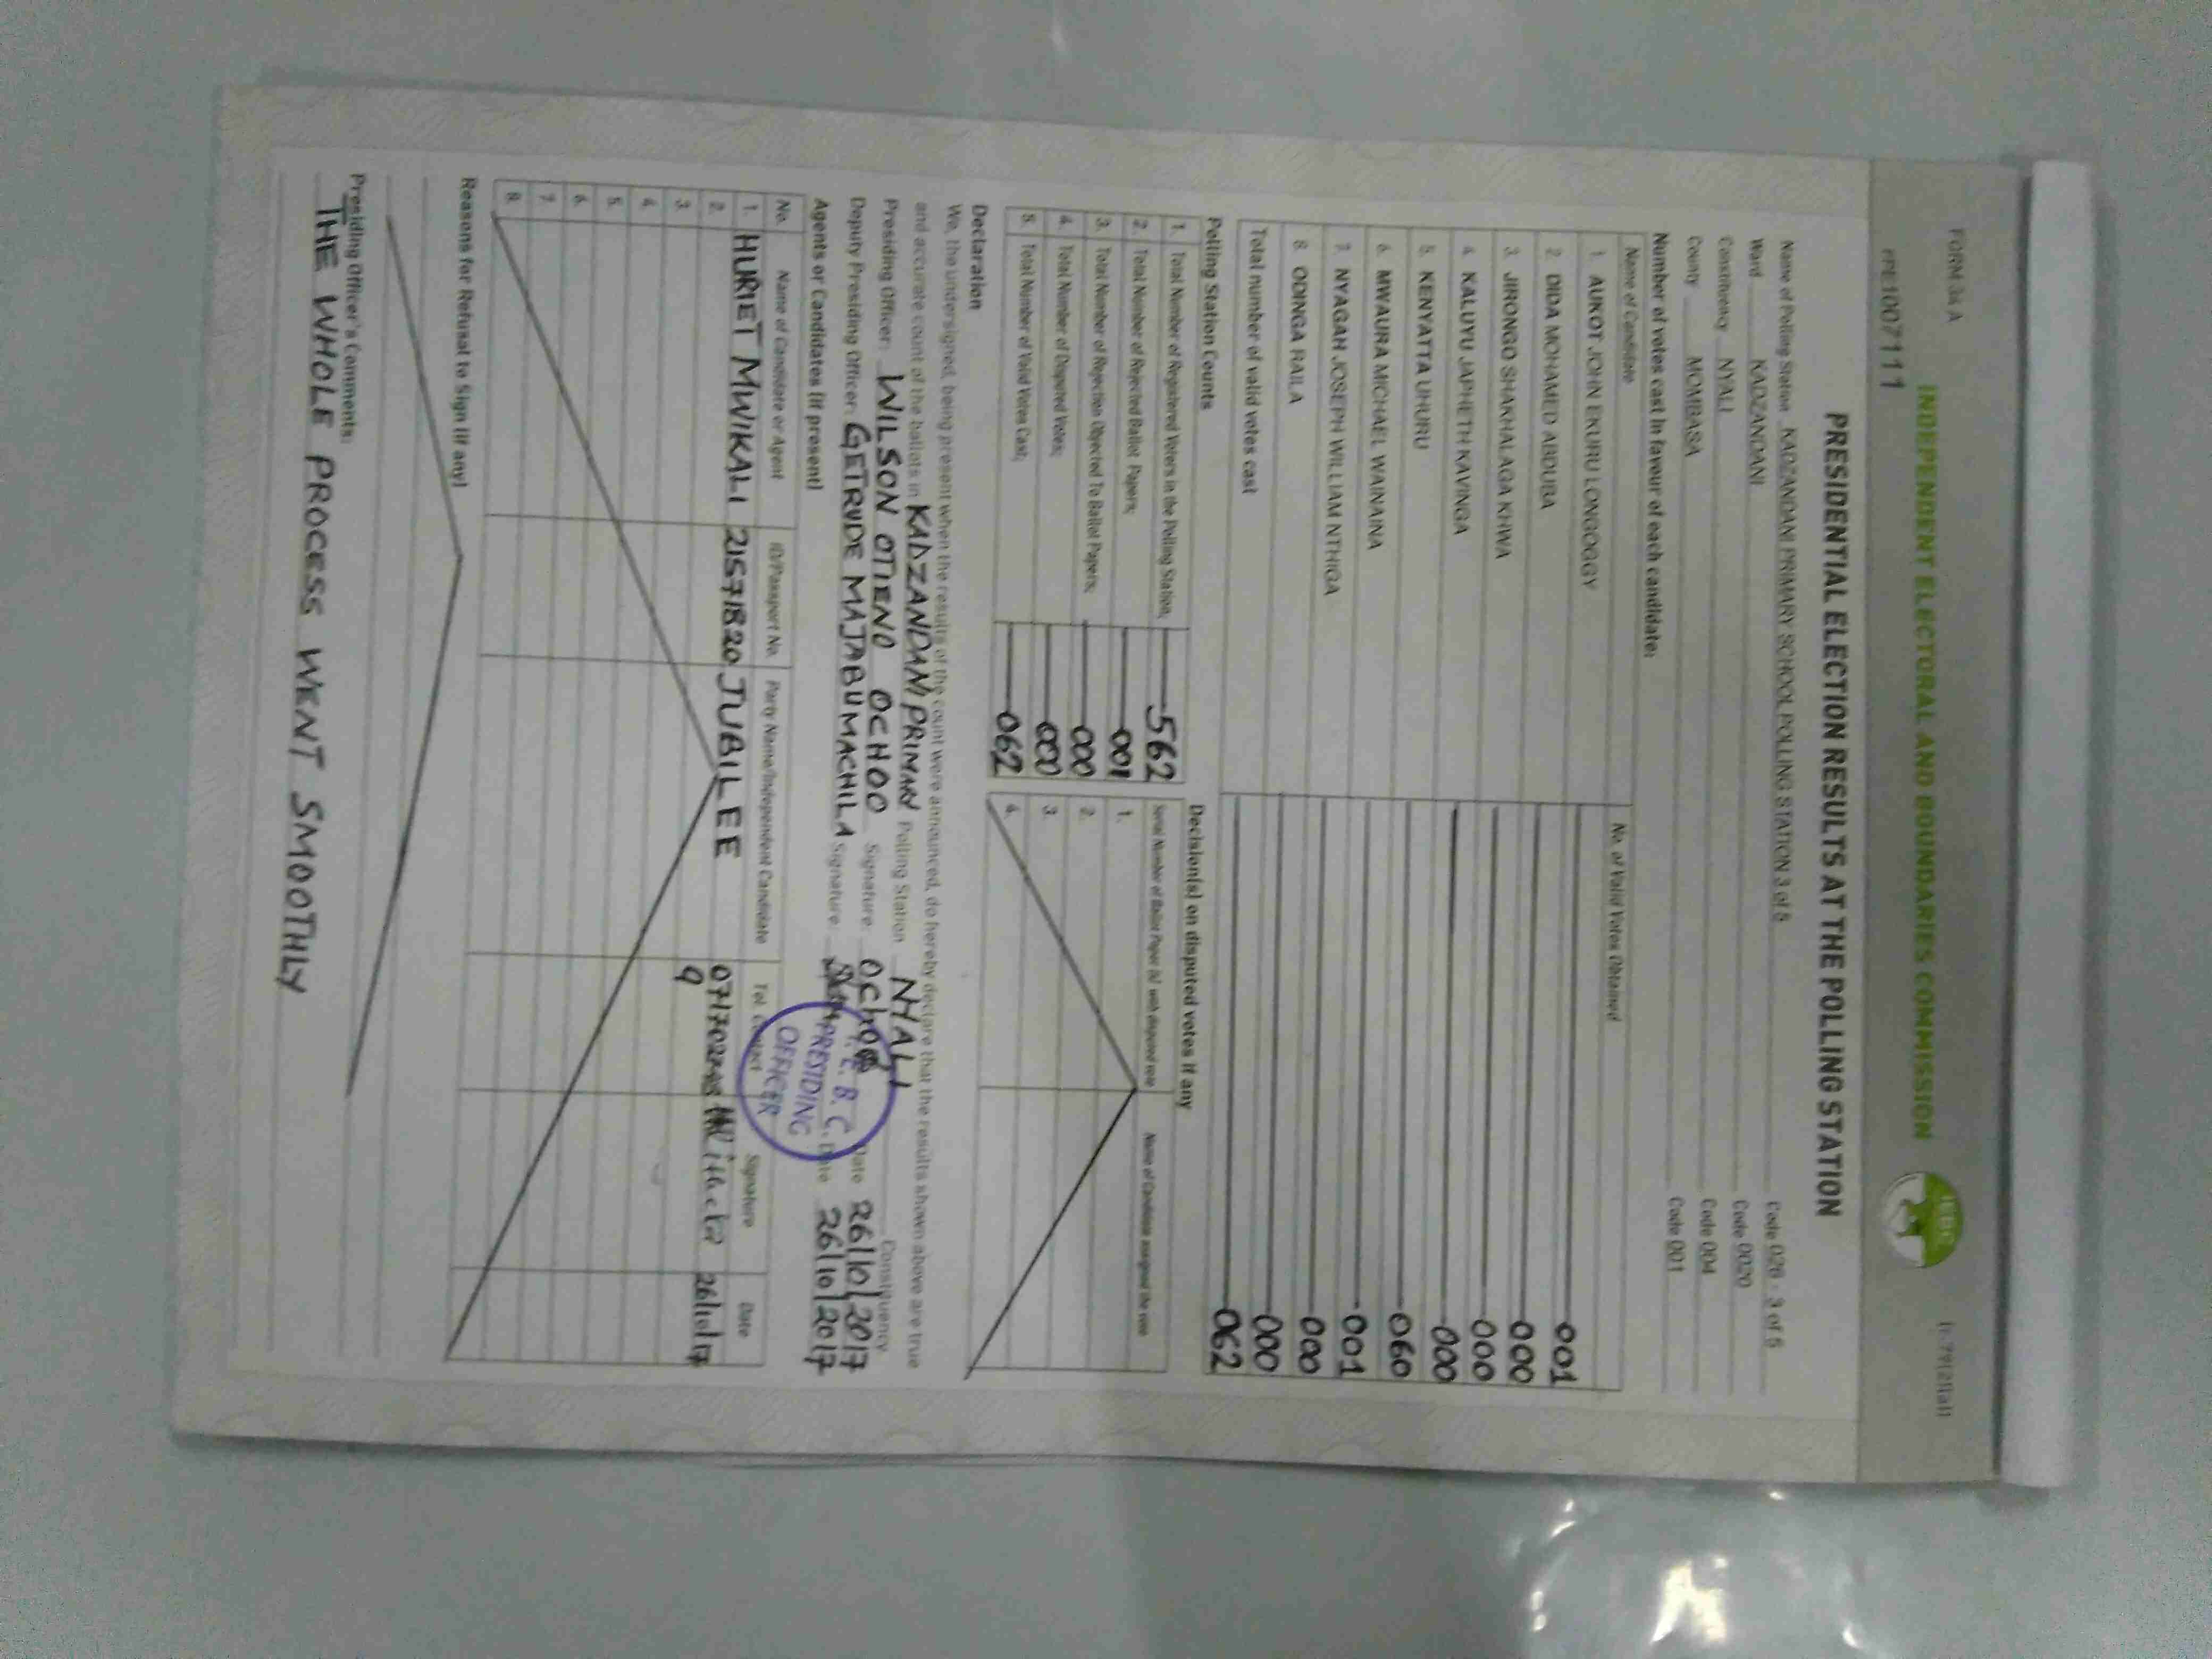 FORM 34 A
INDEPENDENT ELECTORAL AND BOUNDARIES COMMISSION
IEBC
PRESIDENTIAL ELECTION RESULTS AT THE POLLING STATION
Name of Polling Station KADZANDANI PRIMARY SCHOOL POLLING STATION 3 of 5 Code 026 - 3 of 5
Ward KADZANDANI Code 0020
Constituency NYALI Code 004
County MOMBASA Code 001
Number of votes cast in favour of each candidate:
Name of Candidate No. of Valid Votes Obtained
1. AUKOT JOHN EKURU LONGOGGY 001
2. DIDA MOHAMED ABDUBA 000
3. JIRONGO SHAKHALAGA KHWA 000
4. KALUYU JAPHETH KAVINGA 000
5. KENYATTA UHURU 060
6. MWAURA MICHAEL WAINAINA 001
7. NYAGAH JOSEPH WILLIAM NTHIGA 000
8. ODINGA RAILA 000
Total number of valid votes cast 062
Polling Station Counts
1. Total Number of Registered Voters in the Polling Station; 562
2. Total Number of Rejected Ballot Papers; 001
3. Total Number of Rejection Objected To Ballot Papers; 000
4. Total Number of Disputed Votes; 000
5. Total Number of Valid Votes Cast; 062
Decision(s) on disputed votes if any
Serial Number of Ballot Paper (s) with disputed vote Name of Candidate assigned the vote
1.
2.
3.
4.
Declaration
We, the undersigned, being present when the results of the count were announced, do hereby declare that the results shown above are true
and accurate count of the ballots in KADZANDANI PRIMARY Polling Station NYALI Constituency
Presiding Officer: WILSON OTIENO OCHOO Signature: Ochoo Date 26/10/2017
Deputy Presiding Officer: GETRUDE MAJABU MACHILA Signature: Date 26/10/2017
I.E.B.C.
PRESIDING
OFFICER
Agents or Candidates (if present)
No. Name of Candidate or Agent ID/Passport No. Party Name/Independent Candidate Tel. Contact Signature Date
1. HURIET MWIKALI 21571820 JUBILEE 26/10/17
2.
3.
4.
5.
6.
7.
8.
Reasons for Refusal to Sign (if any)
Presiding Officer's Comments:
THE WHOLE PROCESS WENT SMOOTHLY